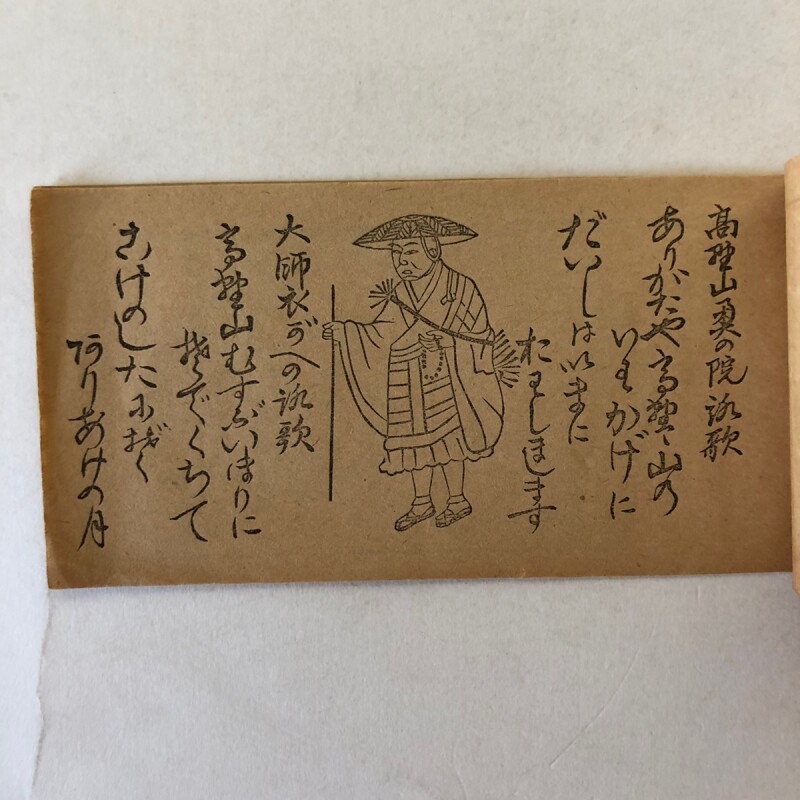 高野山奥の院詠歌
ありがたや高野の山の
いわかげに
だいしはいまに
おわしまします
大師衣がへの詠歌
高野山むすぶいほりに
袖くちて
こけのしたにぞ
ありあけの月